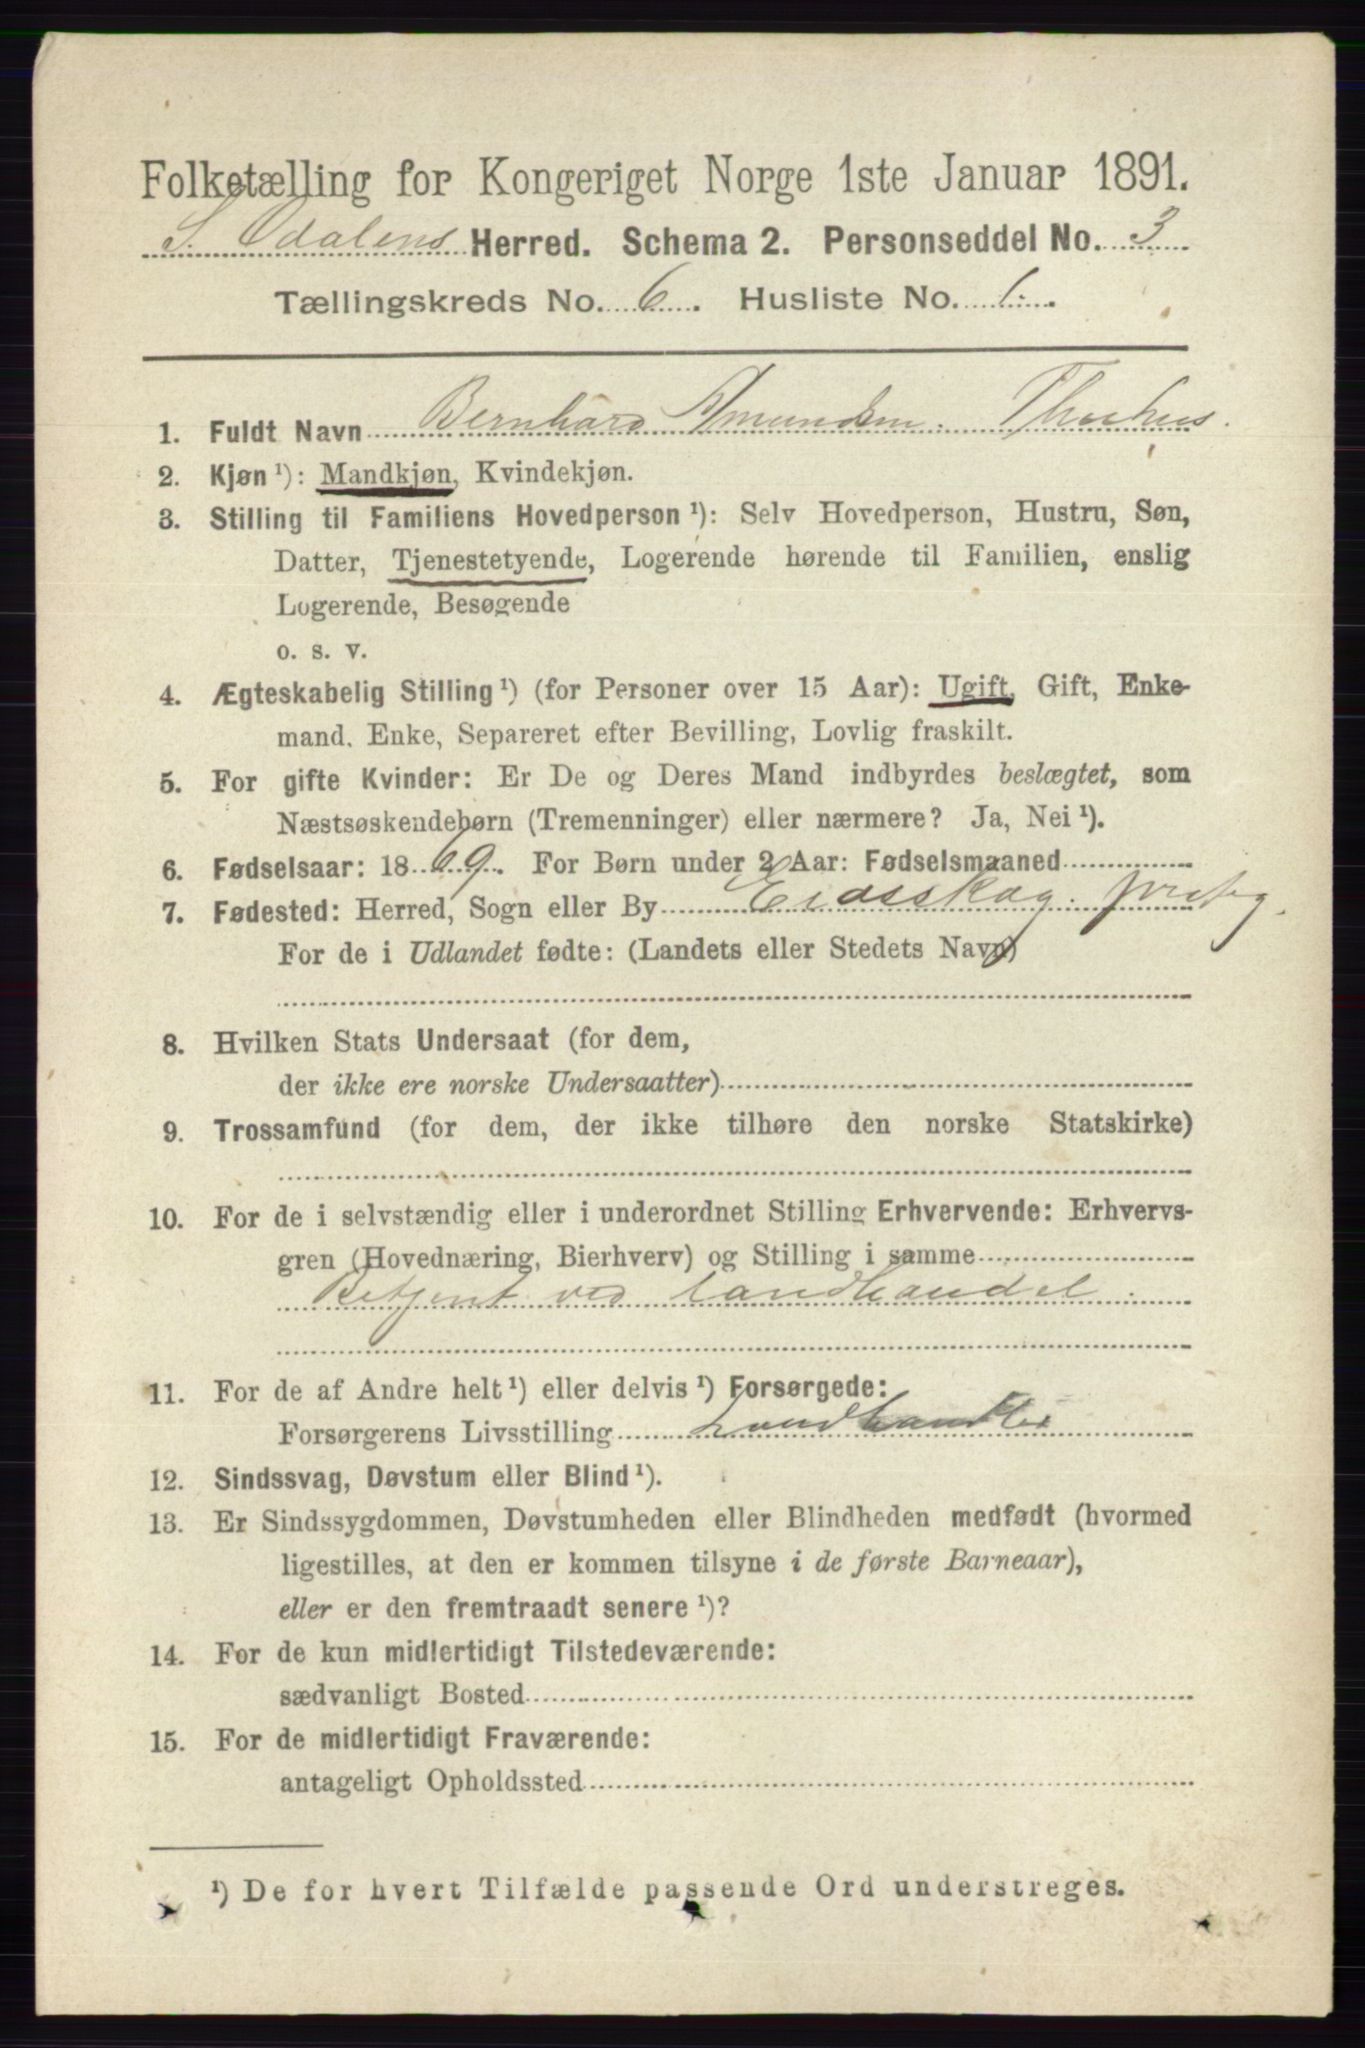 Folketælling for Kongeriget Norge 1ste Januar 1891.
S. Odalens Herred. Schema 2. Personseddel No. 3
Tællingskreds No. 6. Husliste No. 1.
1. Fuldt Navn Bernhard Amundsen
2. Kjøn ¹): Mandkjøn, Kvindekjøn.
3. Stilling til Familiens Hovedperson ¹): Selv Hovedperson, Hustru, Søn,
Datter, Tjenestetyende, Logerende hørende til Familien, enslig
Logerende, Besøgende
o. s. v.
4. Ægteskabelig Stilling ¹) (for Personer over 15 Aar): Ugift, Gift, Enke-
mand. Enke, Separeret efter Bevilling, Lovlig fraskilt.
5. For gifte Kvinder: Er De og Deres Mand indbyrdes beslægtet, som
Næstsøskendebørn (Tremenninger) eller nærmere? Ja, Nei ¹).
6. Fødselsaar: 1869. For Børn under 2 Aar: Fødselsmaaned
7. Fødested: Herred, Sogn eller By Eidsskog
For de i Udlandet fødte: (Landets eller Stedets Navn)
8. Hvilken Stats Undersaat (for dem,
der ikke ere norske Undersaatter)
9. Trossamfund (for dem, der ikke tilhøre den norske Statskirke)
10. For de i selvstændig eller i underordnet Stilling Erhvervende: Erhvervs-
gren (Hovednæring, Bierhverv) og Stilling i samme
Betjent ved landhandel.
11. For de af Andre helt ¹) eller delvis ¹) Forsørgede:
Forsørgerens Livsstilling Landhandler
12. Sindssvag, Døvstum eller Blind ¹).
13. Er Sindssygdommen, Døvstumheden eller Blindheden medfødt (hvormed
ligestilles, at den er kommen tilsyne i de første Barneaar),
eller er den fremtraadt senere ¹)?
14. For de kun midlertidigt Tilstedeværende:
sædvanligt Bosted
15. For de midlertidigt Fraværende:
antageligt Opholdssted
¹) De for hvert Tilfælde passende Ord understreges.